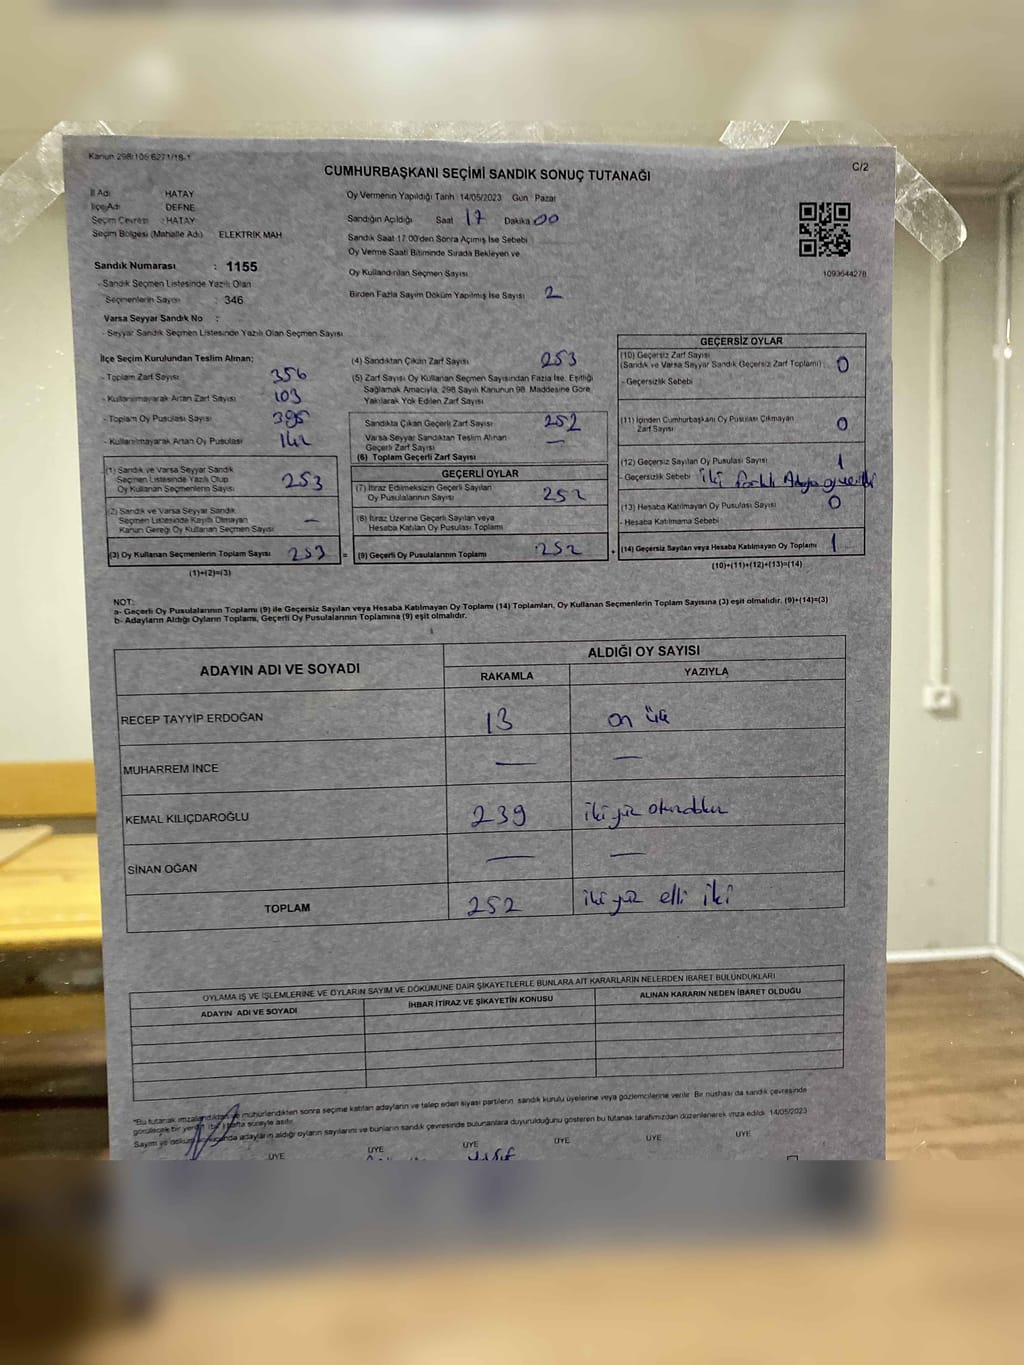 Kanun 298/105 6271/18-1
C/2
CUMHURBAŞKANI SEÇİMİ SANDIK SONUÇ TUTANAĞI
İl Adı : HATAY
İlçe Adı : DEFNE
Seçim Çevresi : HATAY
Seçim Bölgesi (Mahalle Adı) ELEKTRİK MAH
Sandık Numarası : 1155
- Sandık Seçmen Listesinde Yazılı Olan
Seçmenlerin Sayısı : 346
Varsa Seyyar Sandık No :
- Seyyar Sandık Seçmen Listesinde Yazılı Olan Seçmen Sayısı
Oy Vermenin Yapıldığı Tarih 14/05/2023 Gün Pazar
Sandığın Açıldığı Saat 17 Dakika 00
Sandık Saat 17.00'den Sonra Açımış İse Sebebi
Oy Verme Saati Bitiminde Sırada Bekleyen ve
Oy Kullandırılan Seçmen Sayısı
Birden Fazla Sayım Döküm Yapılmış İse Sayısı 2
1093644278
İlçe Seçim Kurulundan Teslim Alınan;
- Toplam Zarf Sayısı 356
- Kullanılmayarak Artan Zarf Sayısı 103
- Toplam Oy Pusulası Sayısı 395
- Kullanılmayarak Artan Oy Pusulası 142
(1) Sandık ve Varsa Seyyar Sandık
Seçmen Listesinde Yazılı Olup
Oy Kullanan Seçmenlerin Sayısı 253
(2) Sandık ve Varsa Seyyar Sandık
Seçmen Listesinde Kayıtlı Olmayan
Kanun Gereği Oy Kullanan Seçmen Sayısı —
(3) Oy Kullanan Seçmenlerin Toplam Sayısı 253 =
(1)+(2)=(3)
(4) Sandıktan Çıkan Zarf Sayısı 253
(5) Zarf Sayısı Oy Kullanan Seçmen Sayısından Fazla İse, Eşitliği
Sağlamak Amacıyla, 298 Sayılı Kanunun 98. Maddesine Göre
Yakılarak Yok Edilen Zarf Sayısı
Sandıkta Çıkan Geçerli Zarf Sayısı 252
Varsa Seyyar Sandıktan Teslim Alınan
Geçerli Zarf Sayısı —
(6) Toplam Geçerli Zarf Sayısı
GEÇERLİ OYLAR
(7) İtiraz Edilmeksizin Geçerli Sayılan
Oy Pusulalarının Sayısı 252
(8) İtiraz Üzerine Geçerli Sayılan veya
Hesaba Katılan Oy Pusulası Toplamı
(9) Geçerli Oy Pusulalarının Toplamı 252 +
GEÇERSİZ OYLAR
(10) Geçersiz Zarf Sayısı
(Sandık ve Varsa Seyyar Sandık Geçersiz Zarf Toplamı) 0
- Geçersizlik Sebebi
(11) İçinden Cumhurbaşkanı Oy Pusulası Çıkmayan
Zarf Sayısı 0
(12) Geçersiz Sayılan Oy Pusulası Sayısı 1
- Geçersizlik Sebebi İki farklı Adaya
(13) Hesaba Katılmayan Oy Pusulası Sayısı 0
- Hesaba Katılmama Sebebi
(14) Geçersiz Sayılan veya Hesaba Katılmayan Oy Toplamı 1
(10)+(11)+(12)+(13)=(14)
NOT:
a- Geçerli Oy Pusulalarının Toplamı (9) ile Geçersiz Sayılan veya Hesaba Katılmayan Oy Toplamı (14) Toplamları, Oy Kullanan Seçmenlerin Toplam Sayısına (3) eşit olmalıdır. (9)+(14)=(3)
b- Adayların Aldığı Oyların Toplamı, Geçerli Oy Pusulalarının Toplamına (9) eşit olmalıdır.
ADAYIN ADI VE SOYADI
ALDIĞI OY SAYISI
RAKAMLA YAZIYLA
RECEP TAYYİP ERDOĞAN 13 on üç
MUHARREM İNCE — —
KEMAL KILIÇDAROĞLU 239 iki yüz otuzdokuz
SİNAN OĞAN — —
TOPLAM 252 iki yüz elli iki
OYLAMA İŞ VE İŞLEMLERİNE VE OYLARIN SAYIM VE DÖKÜMÜNE DAİR ŞİKAYETLERLE BUNLARA AİT KARARLARIN NELERDEN İBARET BULUNDUKLARI
ADAYIN ADI VE SOYADI İHBAR İTİRAZ VE ŞİKAYETİN KONUSU ALINAN KARARIN NEDEN İBARET OLDUĞU
*Bu tutanak imzalandıktan ve mühürlendikten sonra seçime katılan adayların ve talep eden siyasi partilerin sandık kurulu üyelerine veya gözlemcilerine verilir. Bir nüshası da sandık çevresinde
görülecek bir yere bir hafta süreyle asılır.
Sayım ve döküm sonucunda adayların aldığı oyların sayılarını ve bunların sandık çevresinde bulunanlara duyurulduğunu gösteren bu tutanak tarafımızdan düzenlenerek imza edildi. 14/05/2023
ÜYE ÜYE ÜYE ÜYE ÜYE ÜYE